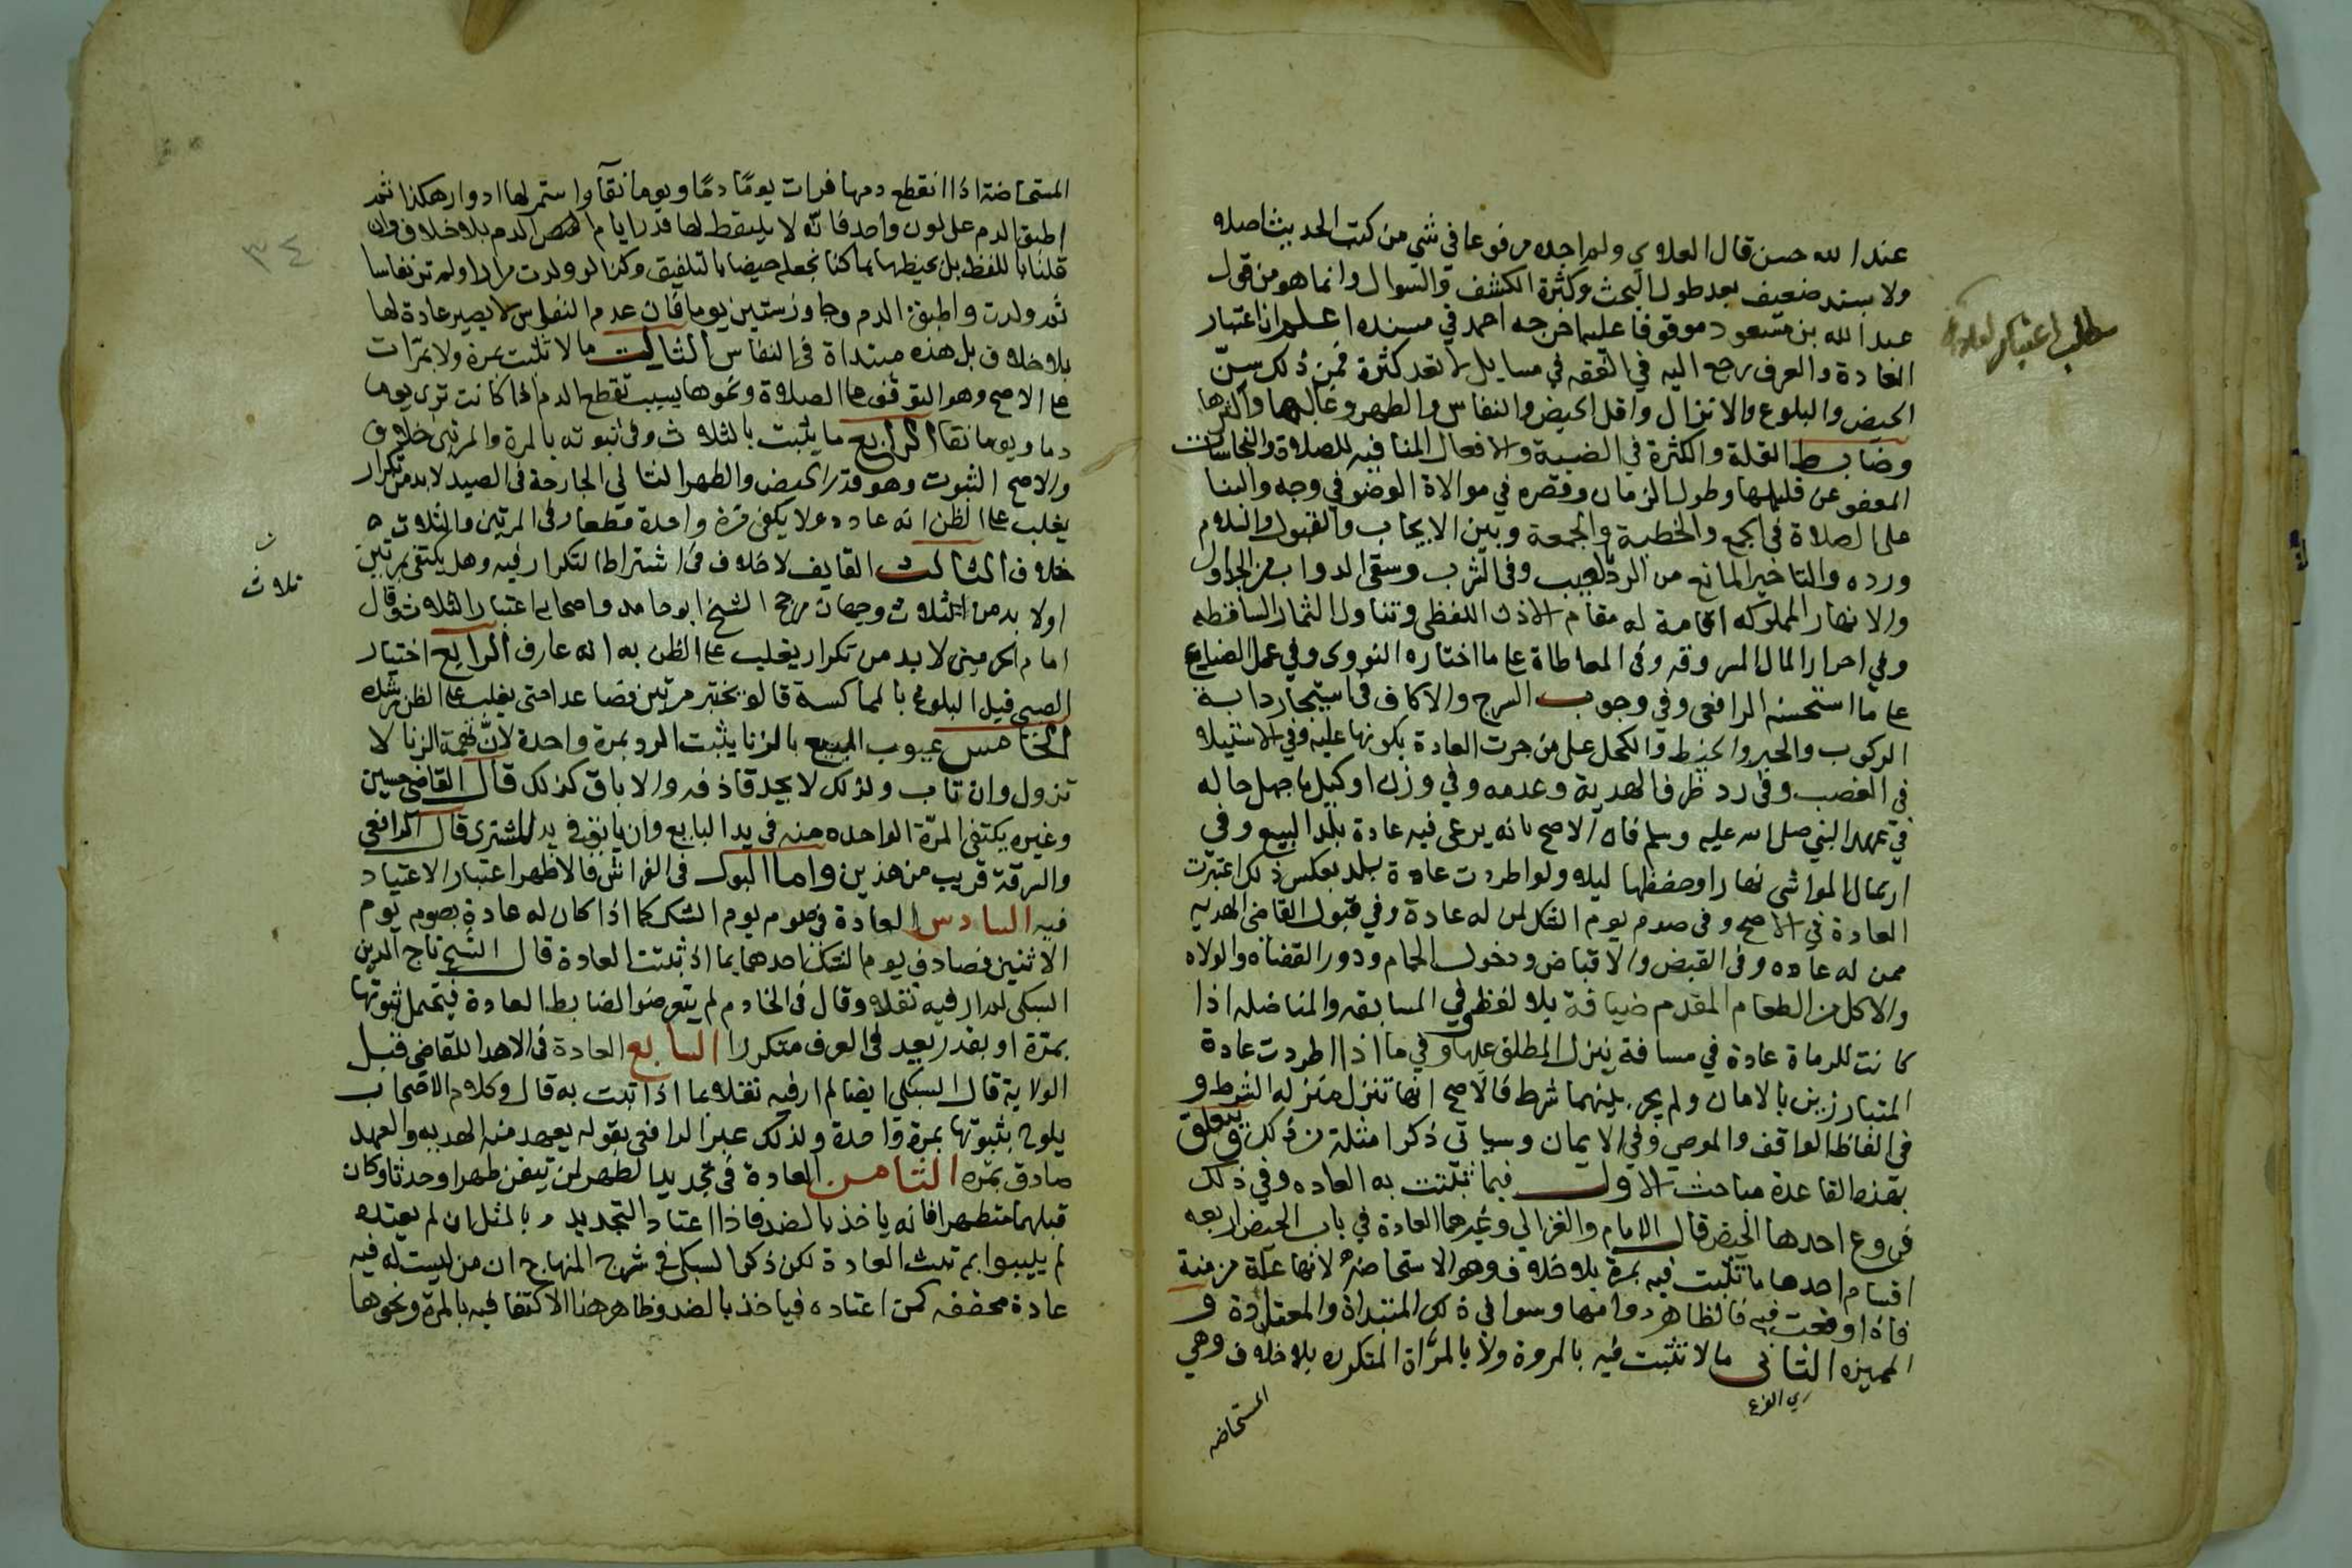 عند الله حسن قال العلاوي ولم اجده مرفوعا في شي من كتب الحديث اصلا
ولا بسند ضعيف بعد طول البحث وكثرة الكشف والسوال وانما هو من قول
عبد الله بن مسعود موقوفا عليه اخرجه احمد في مسنده اعلم ان اعتبار
العادة والعرف رجع اليه في الفقه في مسايل لا تعد كثرة فمن ذلك سن
الحيض والبلوغ والانزال واقل الحيض والنفاس والطهر وغالبها واكثرها
وضابط القلة والكثرة في الضبة والافعال المنافيه للصلاة والنجاسات
المعفو عن قليلها وطول الزمان وقصره في موالاة الوضو في وجه والبنا
على الصلاة في الجمع والخطبة والجمعة وبين الايجاب والقبول والسلام
ورده والتاخير المانع من الرد بالعيب وفي الشرب وسقي الدواب من الجداول
والانهار المملوكه اقامة له مقام الاذن اللفظي وتناول الثمار الساقطه
وفي احراز المال المسروقه وفي المعاطاة على ما اختاره النووي وفي عمل الضايع
على ما استحسنه الرافعي وفي وجوب السرج والاكاف في استيجار دابة
الركوب والحبر والخيط والكحل على من جرت العادة بكونها عليه وفي الاستيلا
في الغصب وفي رد ظرف الهدية وعدمه وفي وزن او كيل ما جهل حاله
في عهد النبي صلى الله عليه وسلم فان الاصح بانه يرعى فيه عادة بلد البيع وفي
ارسال المواشي نهارا وحفظها ليلا ولو اطردت عادة بلد بعكس ذلك اعتبرت
العادة في الاصح وفي صوم يوم الشك لمن له عادة وفي قبول القاضي الهديه
ممن له عاده وفي القبض والاقباض ودخول الحمام ودور القضاه والولاه
والاكل من الطعام المقدم ضيافة بلا لفظ وفي المسابقه والمناضله اذا
كانت للرماة عادة في مسافة ينزل المطلق عليها وفي ما اذا اطردت عادة
المتبارزين بالامان ولم يجر بينهما شرط فالاصح انها تنزل منزله الشرط و
في الفاظ الواقف والموصي وفي الايمان وسياتي ذكر امثلة من ذلك ويتعلق
بهذه القاعدة مباحث الاول فيما تثبت به العاده وفي ذلك
فروع احدها الحيض قال الامام والغزالي وغيرهما العادة في باب الحيض اربعه
اقسام احدها ما تثبت فيه بمرة بلا خلاف وهو الاستحاضه لانها علة مزمنة
فاذا وقعت فيه فالظاهر دوامها وسوا في ذلك المبتداة والمعتادة و
المميزه الثاني ما لا تثبت فيه بالمروة ولا بالمرات المتكوره بلا خلاف وهي
المستحاضه
المستحاضة اذا انقطع دمها فرات يوما دما ويوما نقآ واستمر لها ادوار هكذا ثم
اطبق الدم على لون واحد فانه لا يلتقط لها قدر ايام الدم بلا خلاف وان
قلنا باللفظ بل نحيظها بما كنا نجعله حيضا بالتلفيق وكذا لو ولدت مرارا ولم تر نفاسا
ثم ولدت واطبق الدم وجاوز ستين يوما فان عدم النفاس لا يصير عادة لها
بلا خلاف بل هذه مبتداة في النفاس الثالث ما لا تثبت بمرة ولا بمرات
على الاصح وهو التوقف عن الصلاة ونحوها بسبب تقطع الدم اذا كانت ترى يوما
دما ويوما نقا الرابع ما يثبت بالثلاث وفي ثبوته بالمرة والمرتين خلاف
والاصح الثبوت وهو قدر الحيض والطهر الثاني الجارحة في الصيد لا بد من تكرار
يغلب على الظن انه عادة ولا يكفي مرة واحدة قطعا وفي المرتين والثلاث
خلاف الثالث القايف لا خلاف في اشتراط التكرار فيه وهل يكتفي بمرتين
ثلاث
اولا بد من الثلاث وجهان مرجح الشيخ ابو حامد واصحابه اعتبار الثلاث وقال
امام الحرمين لا بد من تكرار يغلب على الظن به انه عارف الرابع اختبار
الصبي قبل البلوغ بالمماكسة قالوا يختبر مرتين فصاعدا حتى يغلب على الظن رشده
الخامس عيوب المبيع بالزنا يثبت الرد بمرة واحدة لان تهمة الزنا لا
تزول وان تاب ولذلك لا يحد قاذفه والاباق كذلك قال القاضي حسين
وغيره يكتفى المرة الواحده منه في يد البايع وان يابق في يد المشتري قال الرافعي
والسرقة قريب من هذين واما البول في الفراش فالاظهر اعتبار الاعتياد
فيه السادس العادة في صوم يوم الشك كما اذا كان له عادة بصوم يوم
الاثنين فصادف يوم الشك احدهما بماذا تثبت العادة قال الشيخ تاج الدين
السبكي لم ار فيه نقلا وقال في الخادم لم يتعرضوا لضابط العادة فيحتمل ثبوتها
بمرة او بقدر يعد في العرف متكررا السابع العادة في الاهدا للقاضي قبل
الولاية قال السبكي ايضا لم ار فيه نقلا بما اذا تثبت به قال وكلام الاصحاب
يلوح بثبوتها بمرة واحدة ولذلك عبر الرافعي بقوله يعهد منه الهديه والعهد
صادق بمره الثامن العادة في تجديد الطهر لمن تيقن طهرا وحدثا وكان
قبلهما متطهرا فانه ياخذ بالضد فاذا اعتاد التجديد وبالمثل ان لم يعتده
لم يبينوا بم تثبت العادة لكن ذكر السبكي في شرح المنهاج ان من ليست له فيه
عادة محققه كمن اعتاده فياخذ بالضد وظاهر هذا الاكتفا فيه بالمرة ونحوها
٣٤